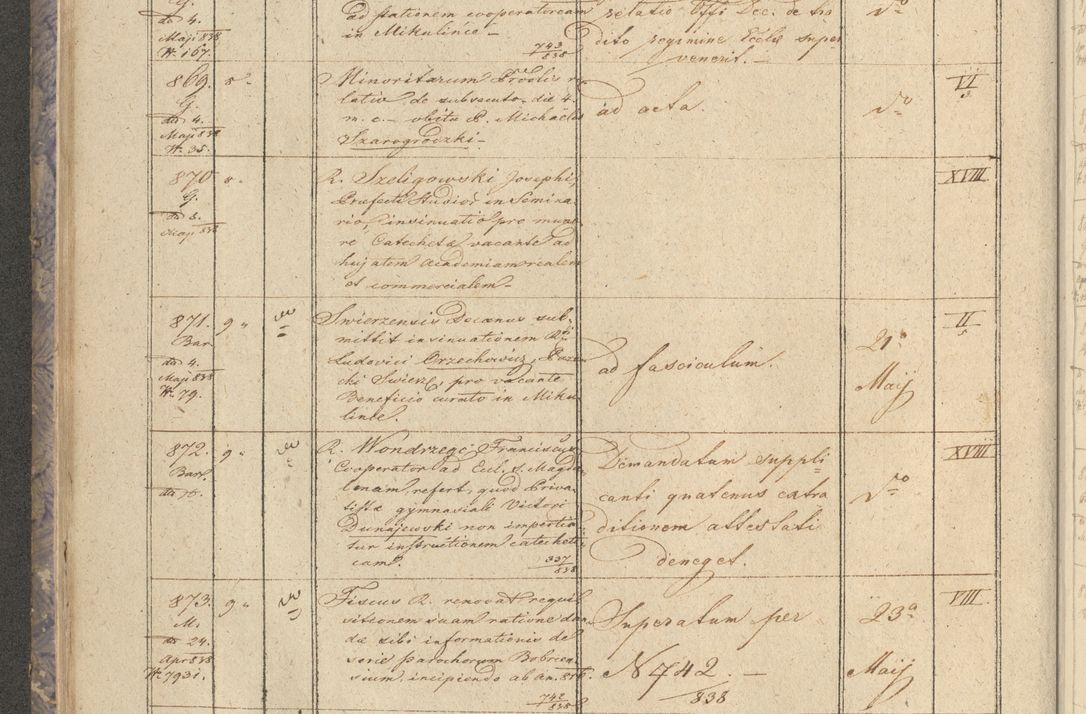 G.
dto 4.
Maji 838
N. 167.
ad stationem cooperatoream
in Mikulince –
743/838
relatio Offi Dec. de tra
dito regimine Ecclae super
venerit. –
dto
869.
G.
dto 4.
Maji 838
N. 35.
8.
Minoritarum Proalis re
lativ. de subsecuto die 4.
m. c. – obitu P. Michaelis
Szarogrodzki –
ad acta.
dto
VI
3.
870
G.
dto 5.
Maji 838
8.
R. Szeligowski Josephi,
Praefecti Studior. in Semina
rio, insinuatio pro mune
re Catechetae vacante ad
hujatem academiam realem
et commercialem –
XVIII
871.
Bar.
dto 4.
Maji 838
N. 79.
9 "
Swierzensis Decanus sub-
mittit insinuationem Rdi
Ludovici Orzechowicz,
cki Swierz, pro vacante
Beneficio curato in Miku
lince.
ad fasciculum.
21a
Maij
II
5
872.
Bar.
dto 75.
9 "
R. Wondrzegć Franciscus
Cooperator ad Eccl. S. Magda
lenam, refert, quod Priva
tistae gymnasiali Victori
Dunajewski non impertia
tur instructionem catecheti
cam.
337/838
Demandatum suppli
canti quatenus extra
ditionem attestati
deneget.
dto
XVIII
873.
M.
dto 24.
Apr 838
N. 7931.
9 "
Fiscus R. renovat requi
sitionem suam ratione dan
dae sibi informationis de
serie parochorum Bobrcen
sium, incipiendo ab an.
742/838
Superatum per
N 742. –
838
23a
Maij
VIII.